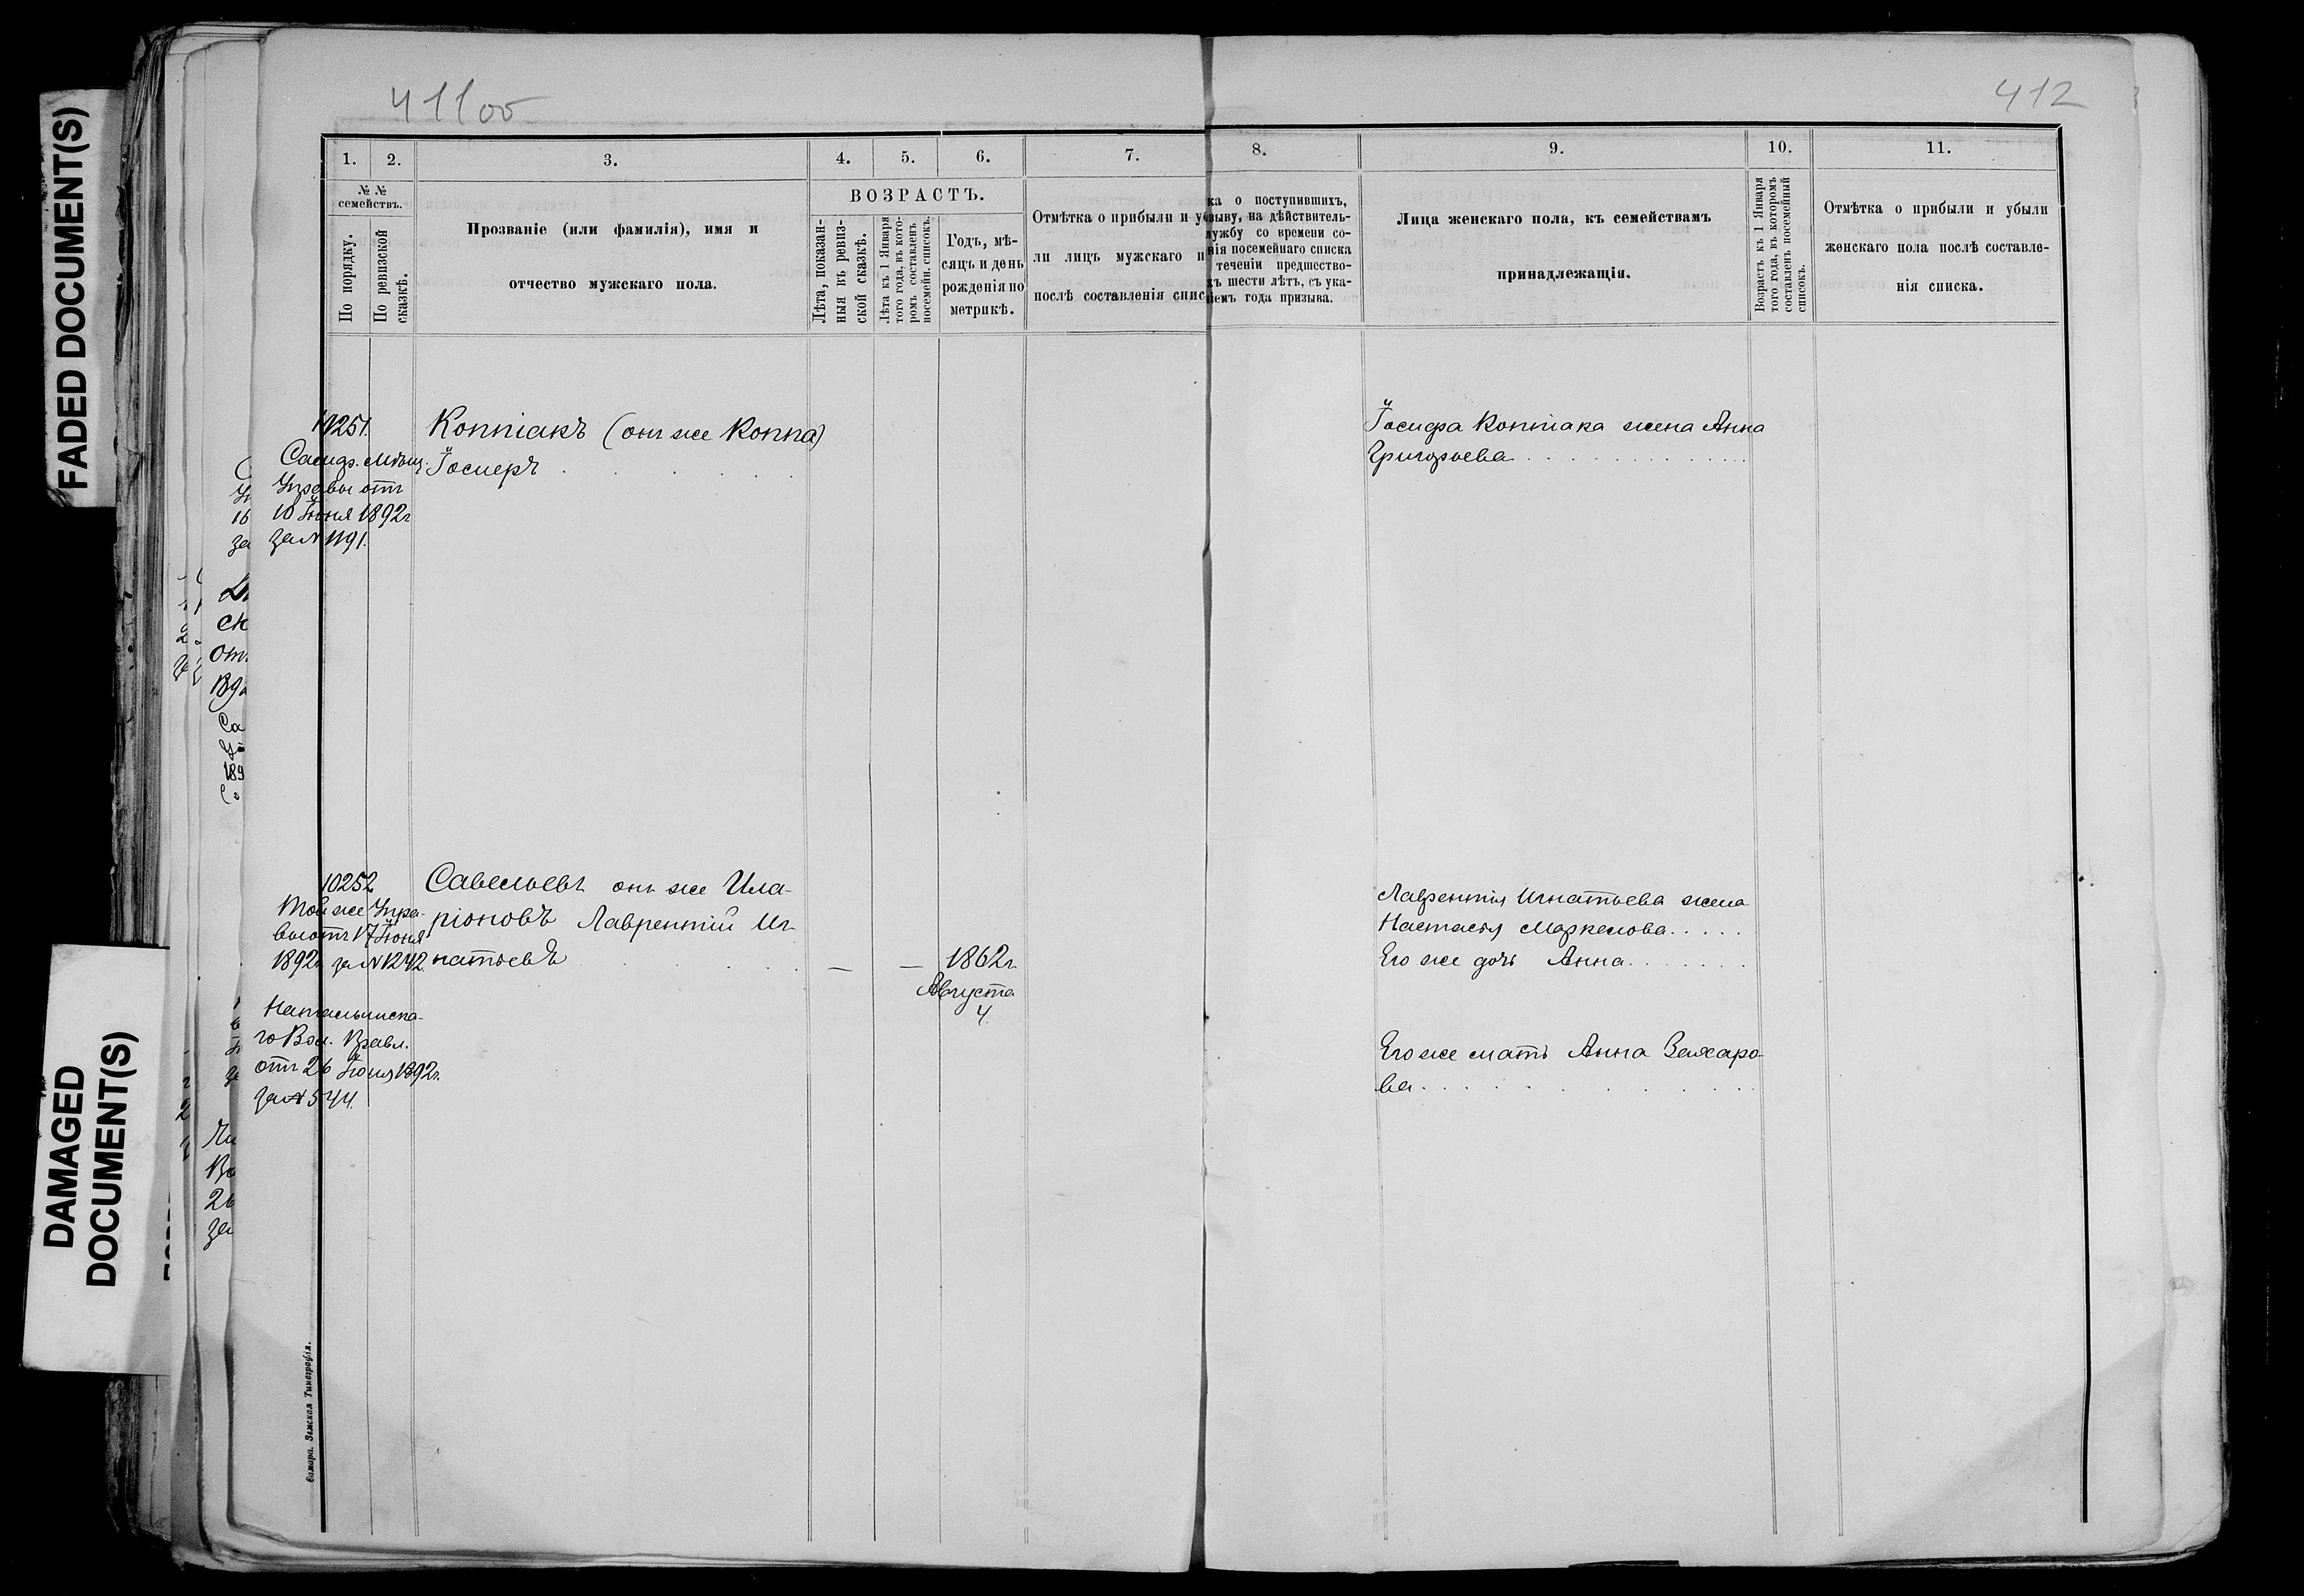 FADED DOCUMENT(S)
DAMAGED
DOCUMENT(S)
411об
412
1.
2.
3.
4.
5.
6.
7.
8.
9.
10.
11.
№ №
семействъ.
По порядку.
По ревизской
сказкѣ.
Прозваніе (или фамилія), имя и
отчество мужскаго пола.
ВОЗРАСТЪ.
Лѣта, показан-
ныя въ ревиз-
ской сказкѣ.
Лѣта къ 1 Января
того года, въ кото-
ромъ составленъ
посемейн. списокъ.
Годъ, мѣ-
сяцъ и день
рожденія по
метрикѣ.
Отмѣтка о прибыли и у
ли лицъ мужскаго п
послѣ составленія спис
ка о поступившихъ,
зыву, на дѣйствитель-
лужбу со времени со-
нія посемейнаго списка
теченіи предшество-
хъ шести лѣтъ, съ ука-
іемъ года призыва.
Лица женскаго пола, къ семействамъ
принадлежащія.
Возрастъ къ 1 Января
того года, въ которомъ
составленъ посемейный
списокъ.
Отмѣтка о прибыли и убыли
женскаго пола послѣ составле-
нія списка.
10251.
Самар. Мѣщ.
Управы отъ
10 Іюня 1892г
за № 1191.
Коппіакъ (онъ же Коппа)
Іосифъ
Іосифа Коппіака жена Анна
Григорьева
10252
Той же Упра-
вы отъ 17 Іюня
1892г за № 1242.
Натальинска-
го Вол. Правл.
отъ 26 Іюня 1892г.
за № 544.
Савельевъ онъ же Ила-
ріоновъ Лаврентій Иг-
натьевъ
— — 1862г.
Августа
4.
Лаврентія Игнатьева жена
Настасья Маркелова
Его же дочь Анна
Его же мать Анна Захаро-
ва
Самара. Земская Типографія.